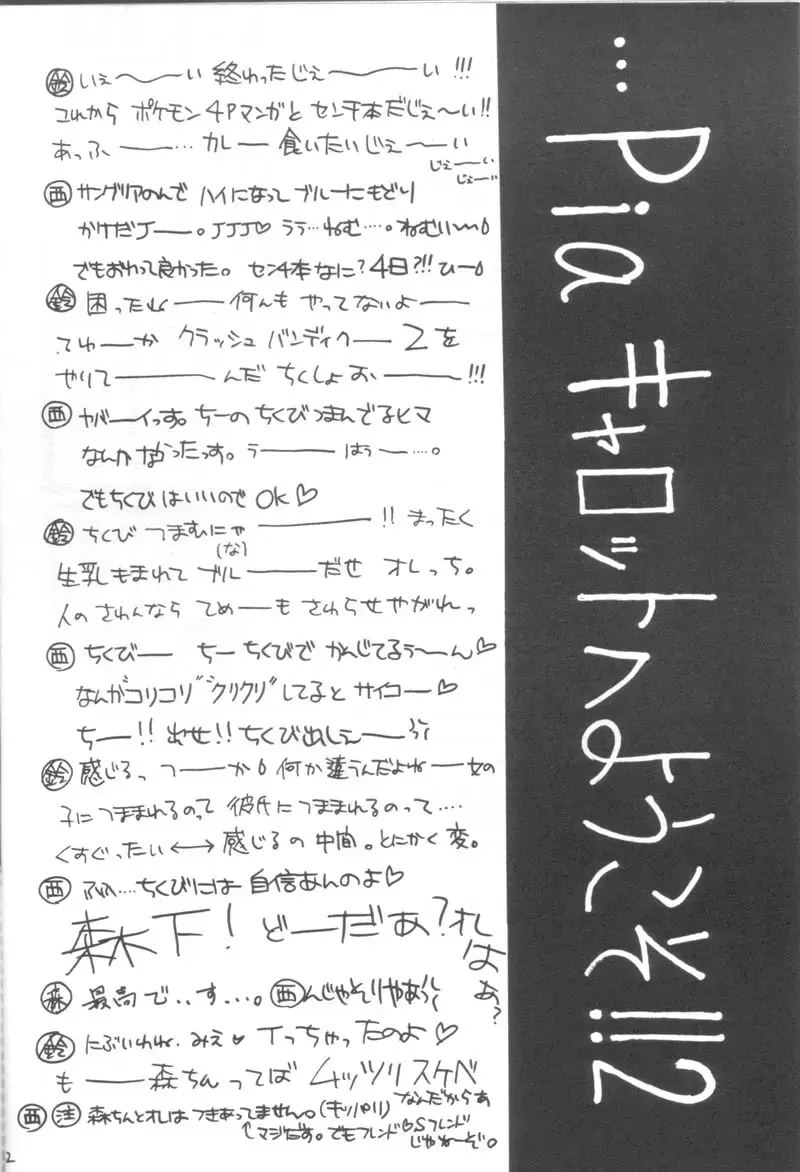 …Piaキャロットへようこそ!!2
鈴 いぇ〜ーい 終わったじぇ〜ーい!!!
これから ポケモン 4Pマンガと センチ本だじぇ〜い!!
あっふ ー… カレー 食いたいじぇ〜い
じぇ〜い
じぇーい
西 サングリアのんで ハイになって ブルーにもどり
かけだJー。JJJ♡ ララ…ねむ…。ねむい〜
でもおわって良かった。センチ本なに?4日?!!ひー
鈴 困ったねー 何んも やってないよー
てゆーか クラッシュ バンディクー 2を
やりてーんだ ちくしょおー!!!
西 ヤバーイっす。ちーの ちくびつまんでるヒマ
なんかなかったっす。うー はぅー…。
でもちくびはいいので OK♡
鈴 ちくび つまむにゃー!! まったく
(な)
生乳もまれて ブルーだせ オレっち。
人の さわんなら てめーも さわらせやがれっ
西 ちくびー ちーちくびで かんじてるぅーん♡
なんかコリコリ"クリクリ"してるとサイコー♡
ちー!!出せ!!ちくび出しぇー
鈴 感じるっ つーか 何か違うんだよねー 女の
子につままれるのって 彼氏につままれるのって…
くすぐったい ←→ 感じるの 中間。とにかく 変。
西 ふふ…ちくびには 自信あんのよ♡
森木下!どーだぁ?れはぁ?
森 最高で‥す…。西んじゃそりゃあっ
鈴 にぶいわね.みえ♥ Tっちゃったのよ♡
もー森ちんってば ムッツリスケベ
なんだからぁ
西 注 森ちんとオレは つきあってません。(キッパリ)
↑マジだす。でもフレンド♡Sフレンド
じゃねーぞ。
2